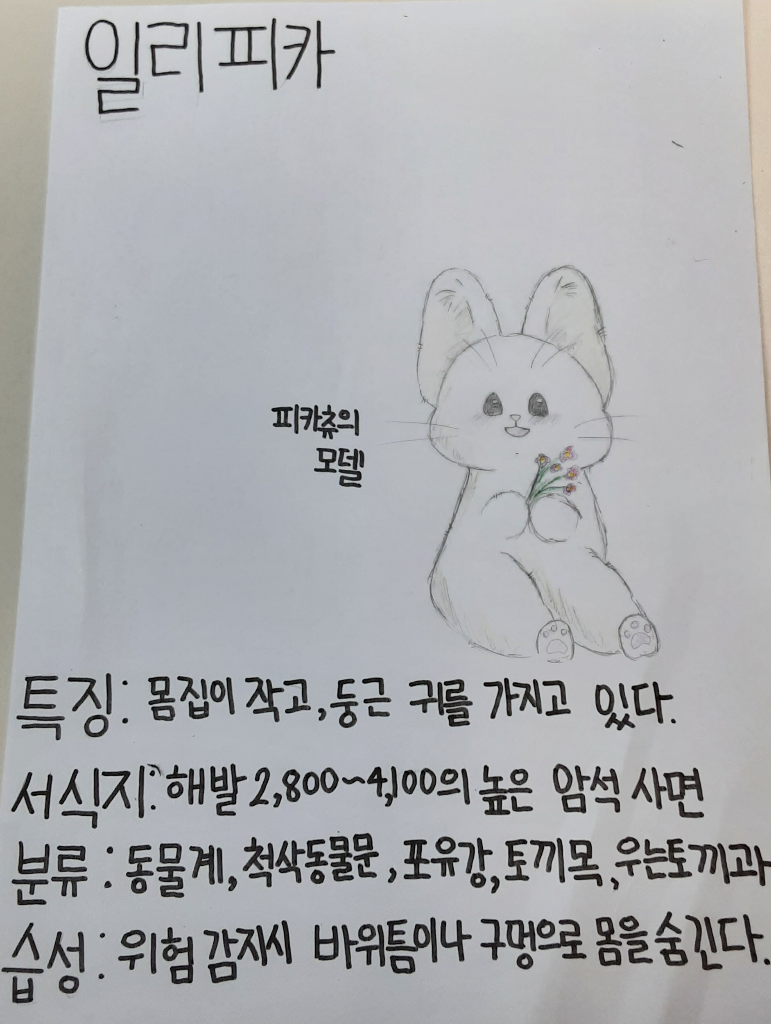 일리피카
피카츄의
모델
특징: 몸집이 작고, 둥근 귀를 가지고 있다.
서식지: 해발 2,800~4,100의 높은 암석 사면
분류: 동물계, 척삭동물문, 포유강, 토끼목, 우는토끼과
습성: 위험 감지시 바위틈이나 구멍으로 몸을 숨긴다.